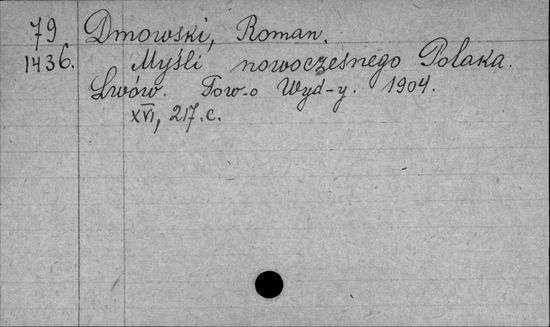 79 Dmowski, Roman.
1436. Myśli nowoczesnego Polaka.
Lwów. Tow-o Wyd-y. 1904.
XVI, 217.c.